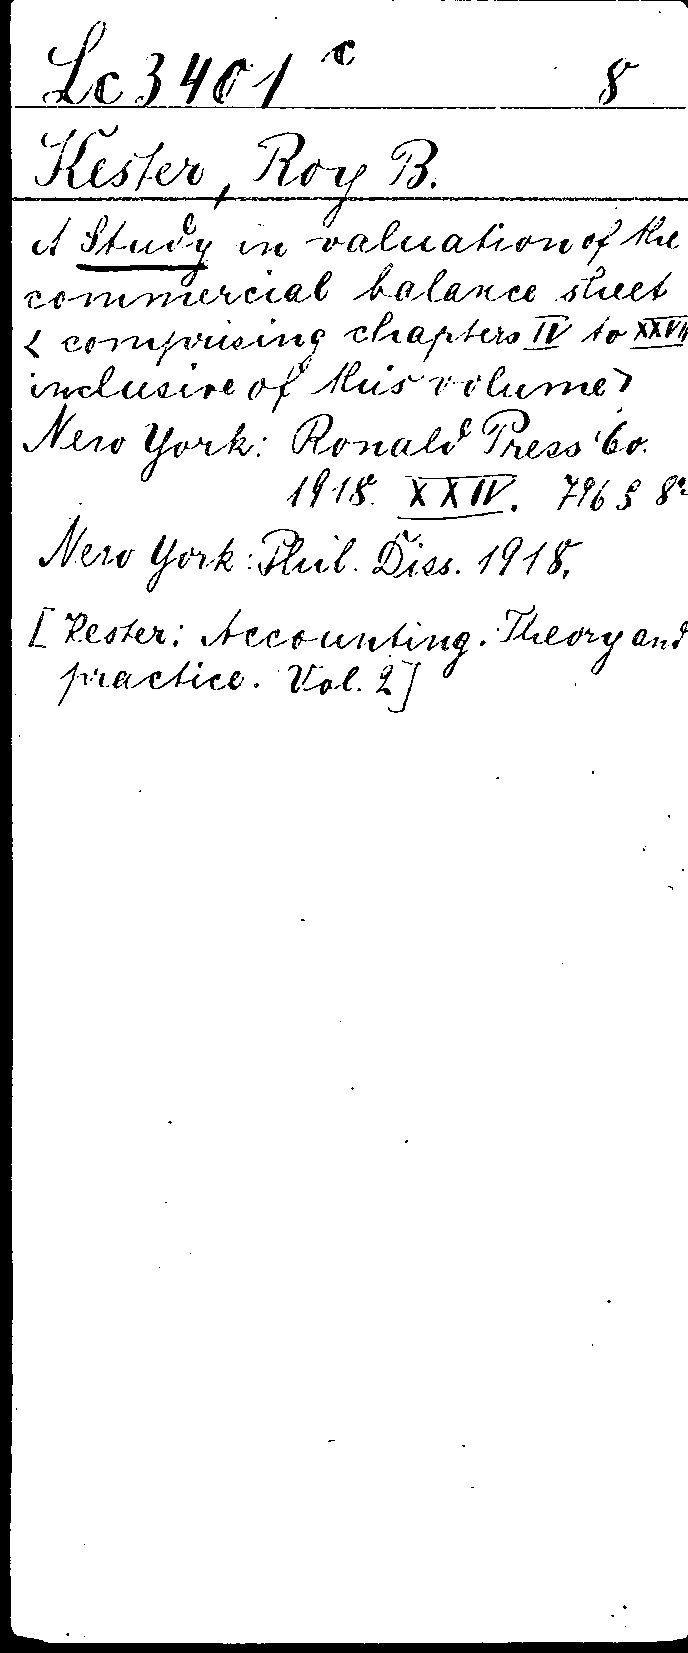 Lc 3401 c 8
Kester, Roy B.
A Study in valuation of the
commercial balance sheet
< comprising chapters IV to XXVII
inclusive of this volume>
New York: Ronald Press Co.
1918. XXIV. 796 S 8°
New York: Phil. Diss. 1918.
[Kester: Accounting. Theory and
practice. Vol. 2]